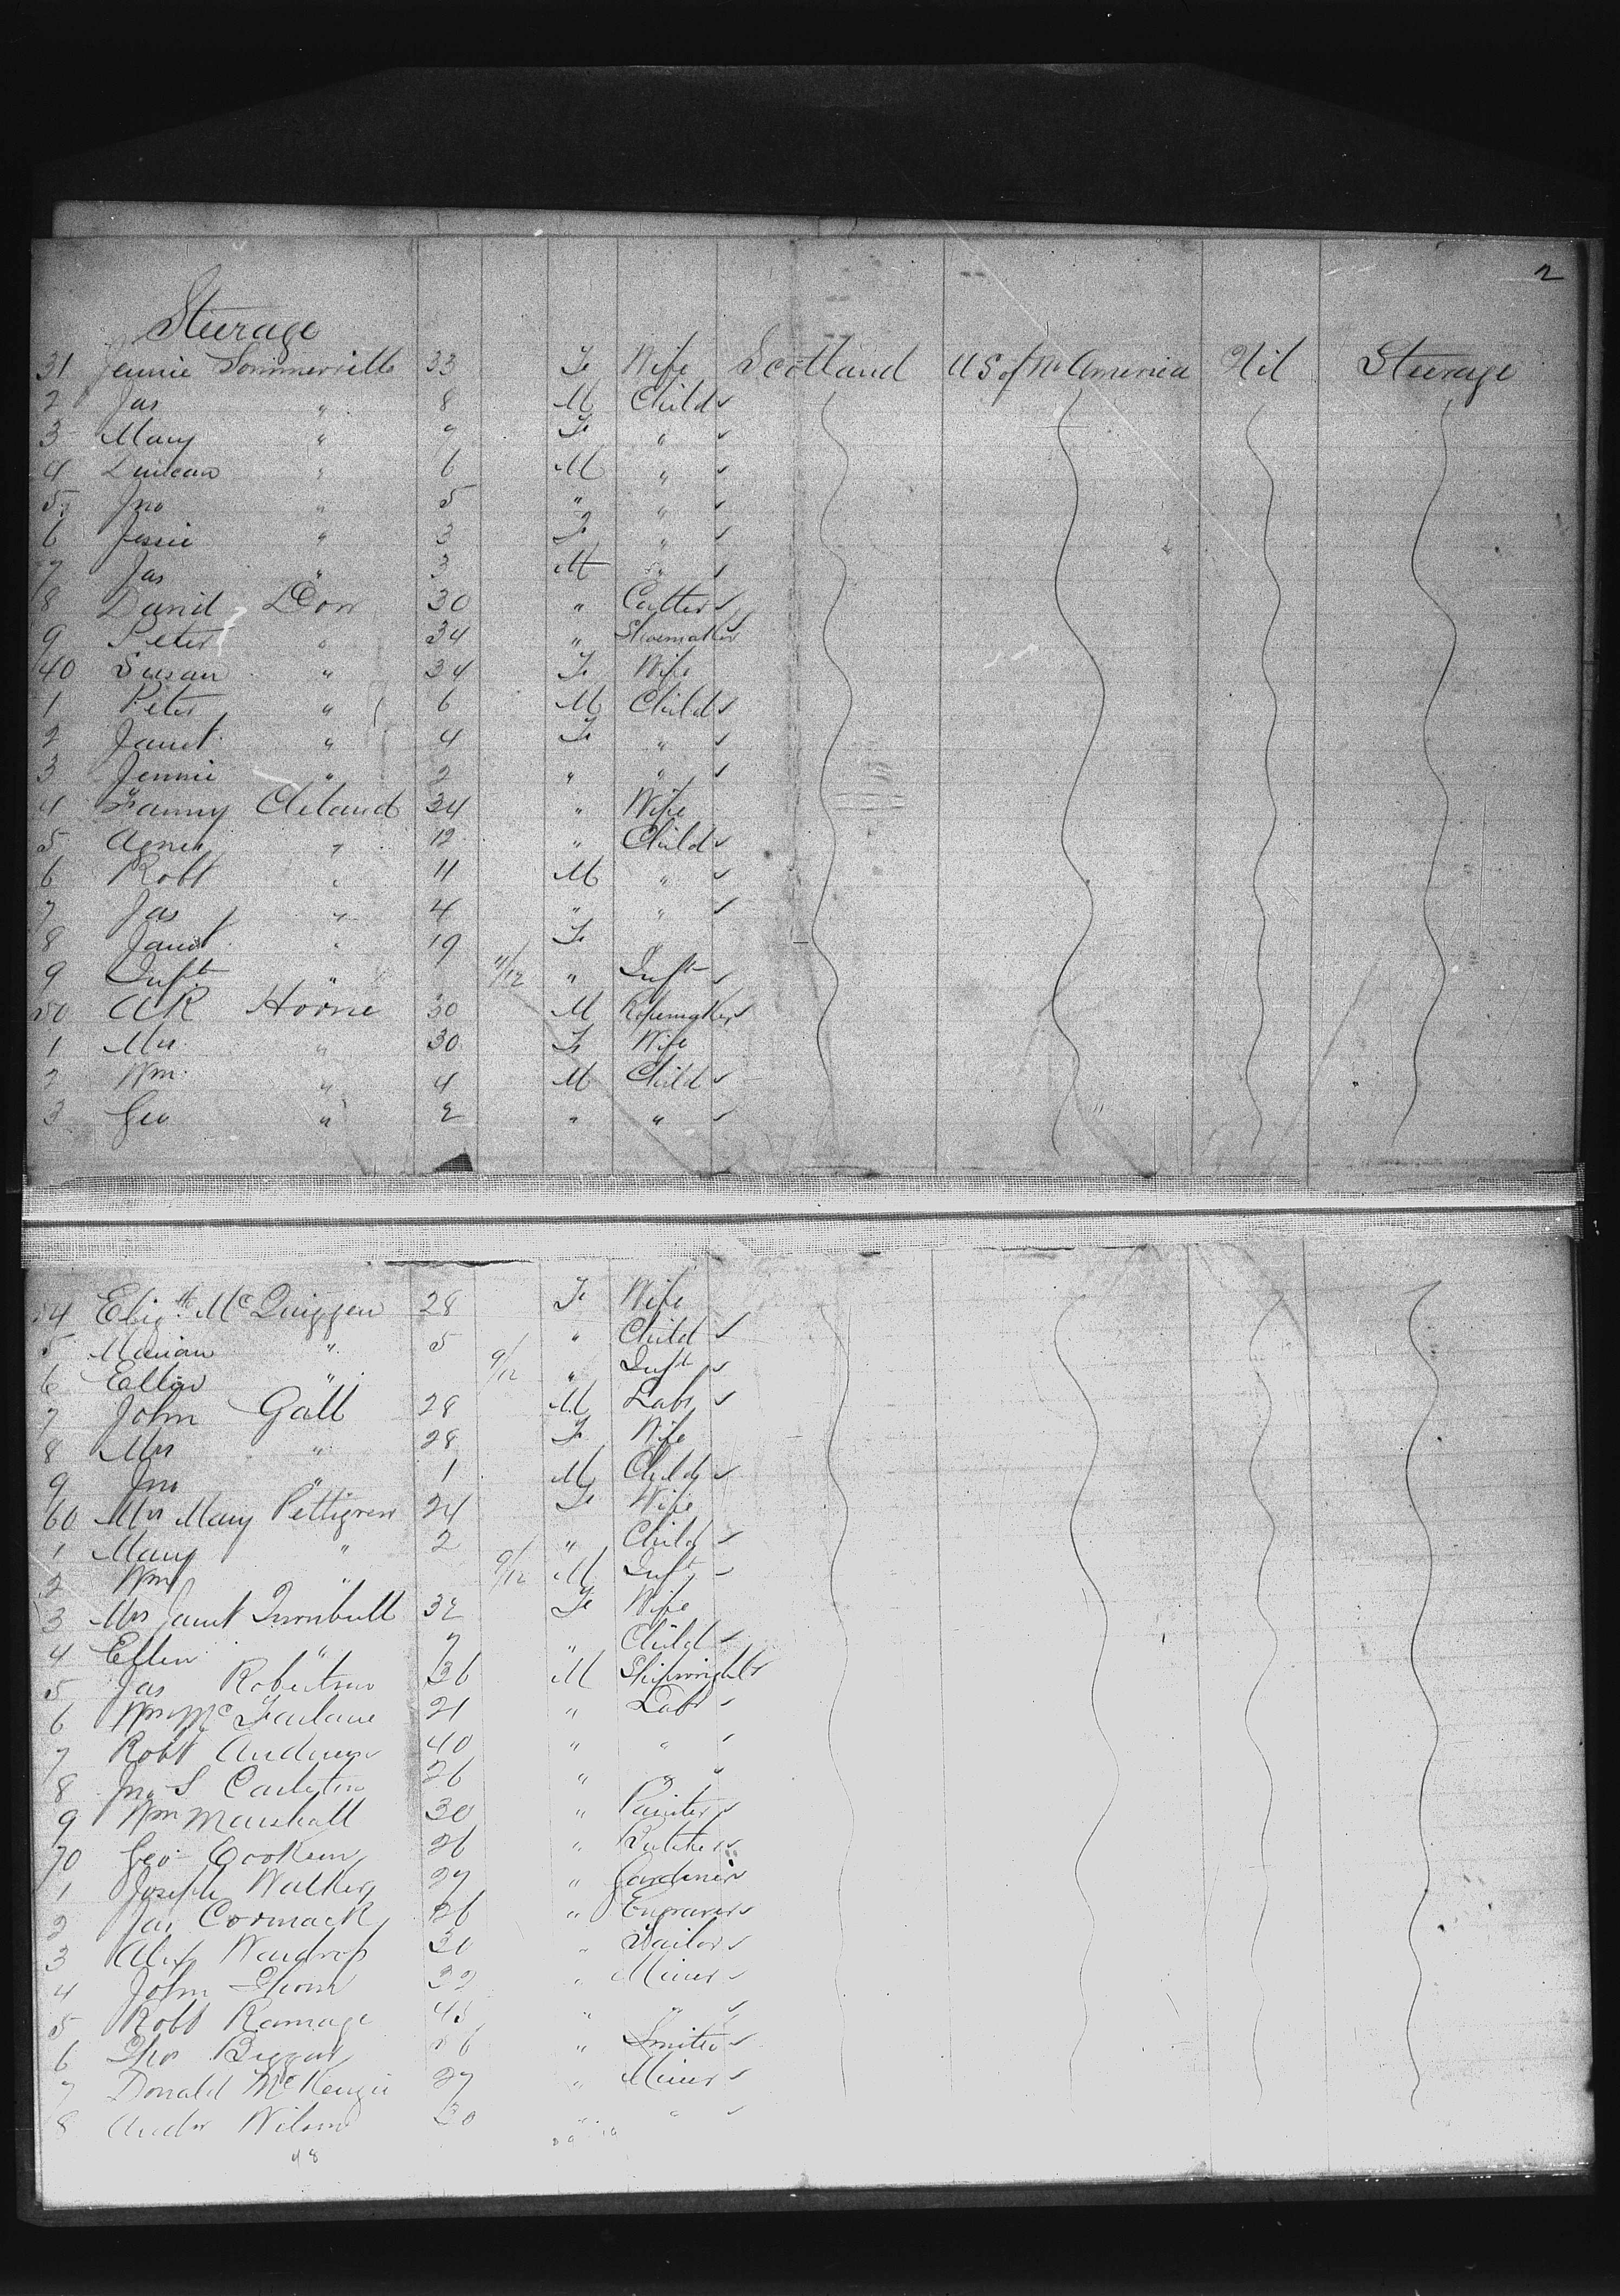 2
Steerage
31 Jennie Sommerville 33 Fe Wife Scotland US of N America Nil Steerage
2 Jas " 8 M Child
3 Mary " 7 Fe "
4 Duncan " 6 M "
5 Jno " 5 " "
6 Jessie " 3 Fe "
7 Jas " 3 M "
8 David Don 30 " Cutter
9 Peter " 34 " Shoemaker
40 Susan " 34 Fe Wife
1 Peter " 6 M Child
2 Janet " 4 Fe "
3 Jennie " 2 " "
4 Fanny Cleland 34 " Wife
5 Agnes " 12 " Child
6 Robt " 11 M "
7 Jas " 4 " "
8 Janet " 19 Fe
9 Inft " 11/12 " Inft
50 A R Horne 30 M Ropemaker
1 Mrs " 30 Fe Wife
2 Wm " 4 M Child
3 Geo " 2 " "
54 Elizth McQuiggen 28 Fe Wife
5 Marian " 5 " Child
6 Ellen " 9/12 " Inft
7 John Gall 28 M Labr
8 Mrs " 28 Fe Wife
9 Jno " 1 M Child
60 Mrs Mary Pettigrew 24 Fe Wife
1 Mary " 2 " Child
2 Wm " 9/12 M Inft
3 Mrs Janet Turnbull 32 Fe Wife
4 Ellen " 7 " Child
5 Jas Robertson 36 M Shipwright
6 Wm McFarlane 21 " Labr
7 Robt Anderson 40 " "
8 Jno S 26 " "
9 Wm Marshall 30 " Painter
70 Geo 26 " Butcher
1 Joseph Walker 27 " Gardiner
2 Jas Cormack 26 " Engraver
3 Alex Wardrop 30 " Sailor
4 John Thom 32 " Miner
5 Robt Ramage " "
6 Thos Biggart " Smith
7 Donald McKenzie 27 " Miner
8 Andw Wilson 30 " "
48